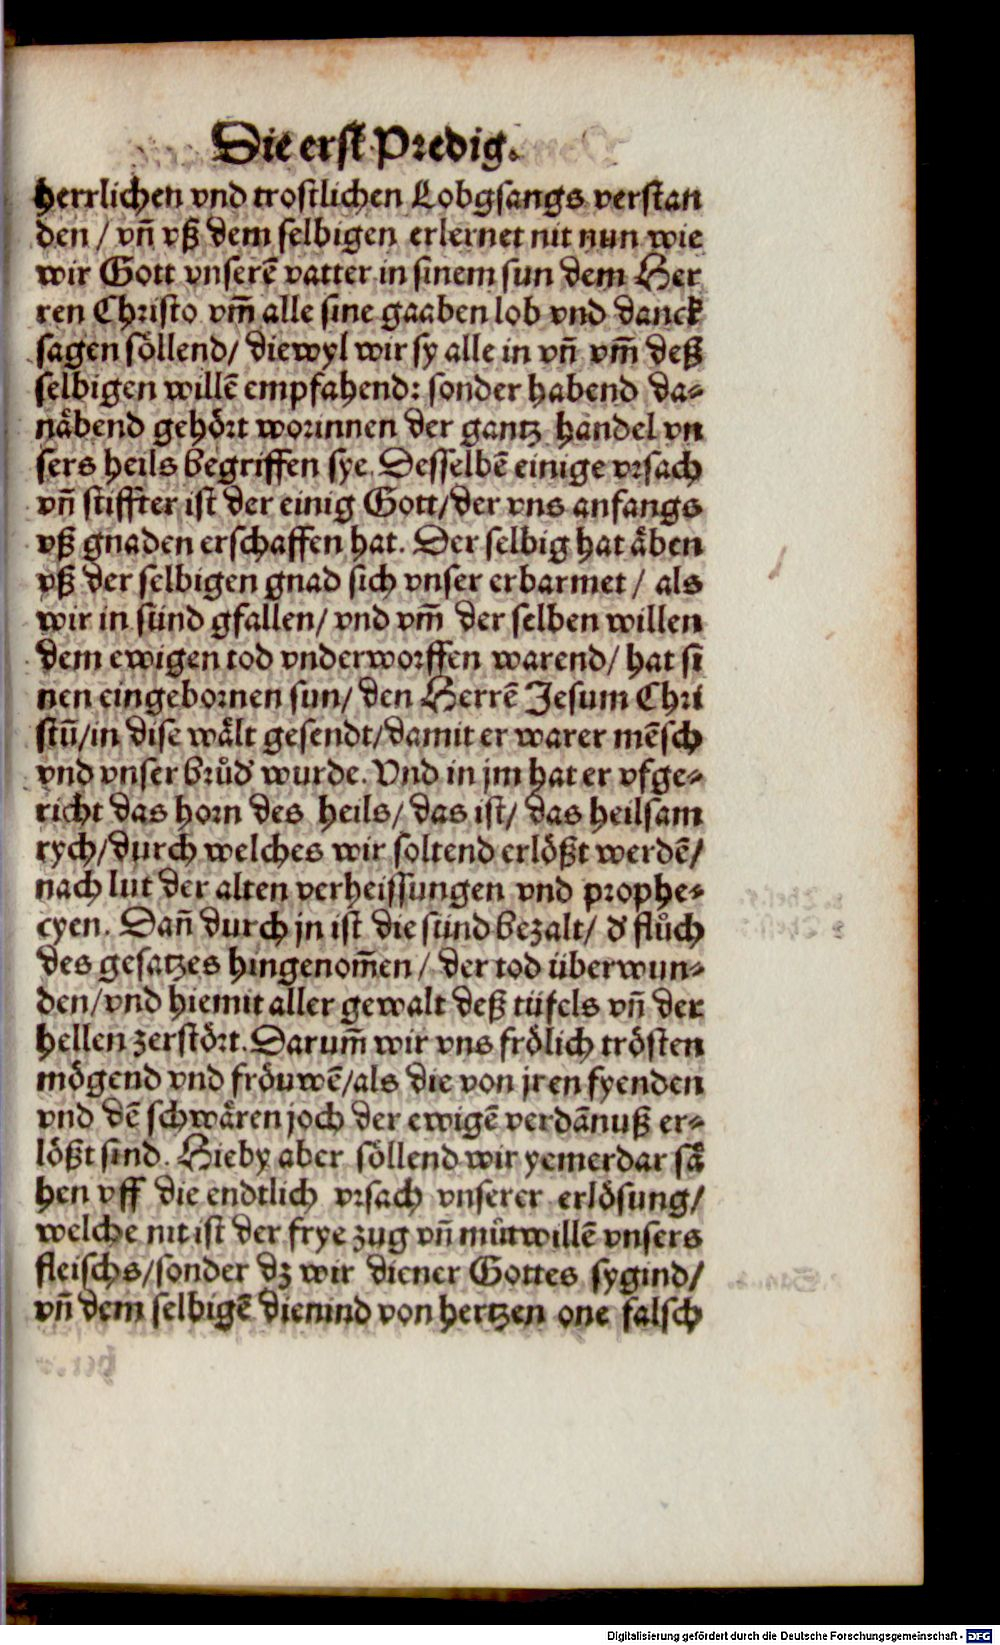 Die erst Predig.
herrlichen vnd trostlichen Lobgsangs verstan
den / vñ vß dem selbigen erlernet nit nun wie
wir Gott vnserē vatter in sinem sun dem Her
ren Christo vm̄ alle sine gaaben lob vnd danck
sagen söllend/ diewyl wir sy alle in vñ vm̄ deß
selbigen willē empfahend: sonder habend da⸗
näbend gehört worinnen der gantz handel vn
sers heils begriffen sye. Desselbē einige vrsach
vñ stiffter ist der einig Gott/der vns anfangs
vß gnaden erschaffen hat. Der selbig hat äben
vß der selbigen gnad sich vnser erbarmet / als
wir in sünd gfallen/ vnd vm̄ der selben willen
dem ewigen tod vnderworffen warend/ hat si
nen eingebornen sun/ den Herrē Jesum Chri
stū/in dise wält gesendt/damit er warer mēsch
vnd vnser brůd' wurde. Vnd in jm hat er vfge⸗
richt das horn des heils/ das ist/ das heilsam
rych/durch welches wir soltend erlößt werdē/
nach lut der alten verheissungen vnd prophe⸗
cyen. Dañ durch jn ist die sünd bezalt/ d' flůch
des gesatzes hingenom̄en / der tod überwun⸗
den/vnd hiemit aller gewalt deß tüfels vñ der
hellen zerstört. Darum̄ wir vns frölich trösten
mögend vnd fröuwē/als die von jren fyenden
vnd dē schwären joch der ewigē verdānuß er⸗
lößt sind. Hieby aber söllend wir yemerdar sä
hen vff die endtlich vrsach vnserer erlösung/
welche nit ist der frye zug vñ můtwillē vnsers
fleischs/sonder dz wir diener Gottes sygind/
vñ dem selbigē dienind von hertzen one falsch
Digitalisierung gefördert durch die Deutsche Forschungsgemeinschaft - DFG